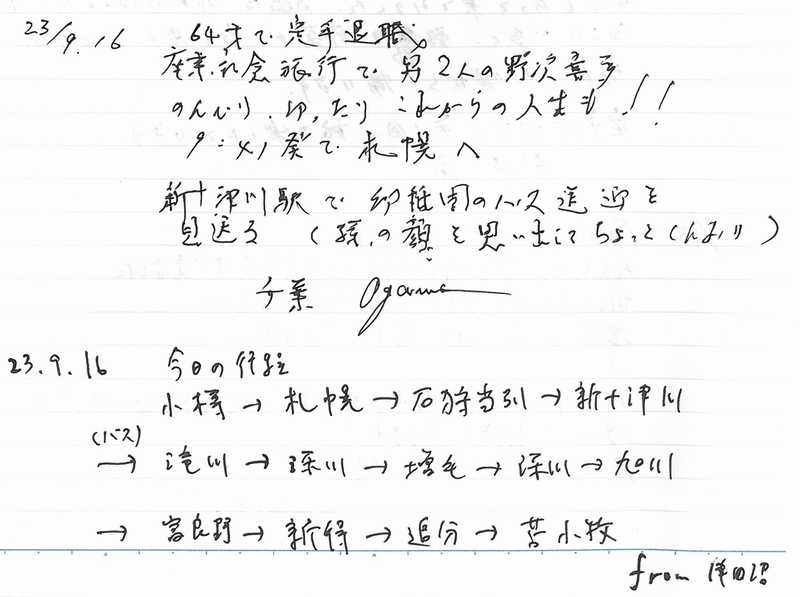 23/9.16 64才で定年退職。
卒業記念旅行で男2人の野次喜多
のんびり、ゆったり これからの人生も!!
9:41発で札幌へ
新十津川駅で幼稚園のバス送迎を
見送る (孫の顔を思い出してちょっとしんみり)
千葉 Ogawa
23.9.16 今日の行程
小樽→札幌→石狩当別→新十津川
(バス)
→滝川→深川→増毛→深川→旭川
→富良野→新得→追分→苫小牧
from 津田沼